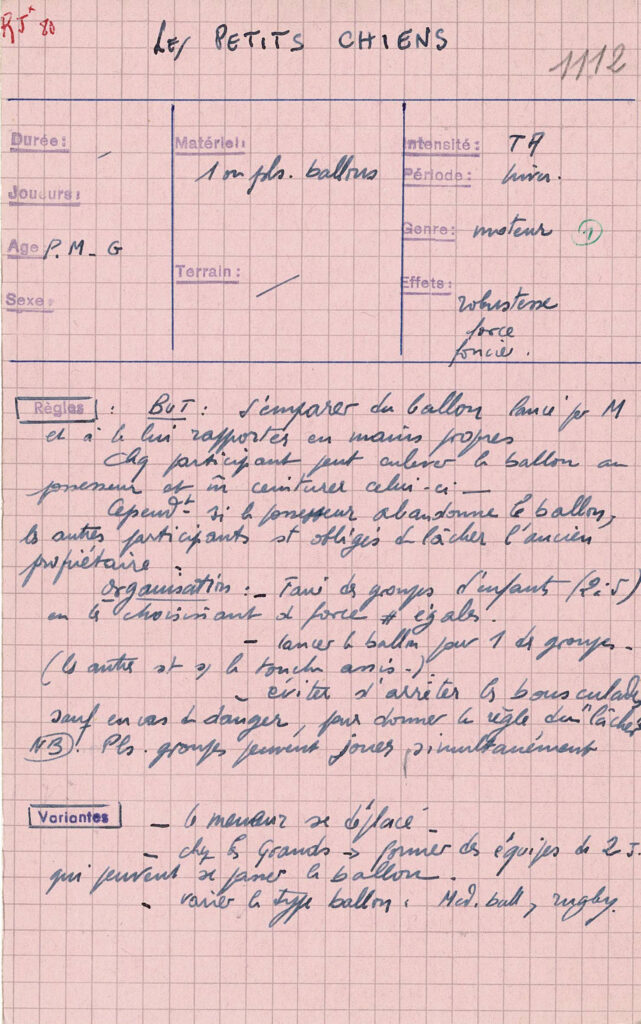 RJx 80
LES PETITS CHIENS
1112
Durée: /
Joueurs:
Age P. M - G
Sexe:
Matériel:
1 ou pls. ballons
Terrain: /
Intensité: TA
Période: hiver.
Genre: moteur 1
Effets:
robustesse
force
foncier.
Règles : BUT : s'emparer du ballon lancé par M
et à le lui rapporter en mains propres
Chq participant peut enlever le ballon au
possesseur et m̂ ceinturer celui-ci —
Cependt si le possesseur abandonne le ballon,
les autres participants st obligés de lâcher l'ancien
propriétaire.
Organisation : - Faire des groupes d'enfants (2 à 5)
en les choisissant de force # égales.
- lancer le ballon pour 1 des groupes -
(les autres st la touche assis -)
- éviter d'arrêter les bousculades
sauf en cas de danger, pour donner la règle du "lâcher
NB. Pls. groupes peuvent jouer simultanément
Variantes - le meneur se déplace -
- chez les Grands → former des équipes de 2 J.
qui peuvent se passer le ballon.
- varier le type ballon : Med. ball, rugby.